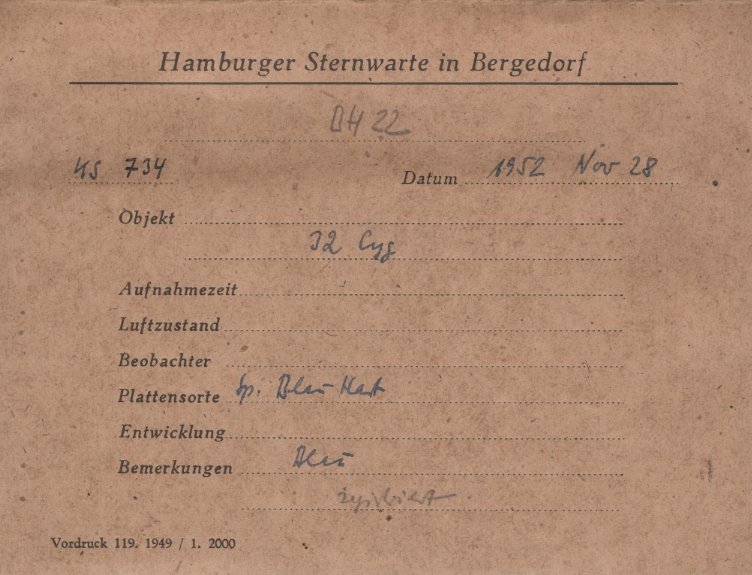 Hamburger Sternwarte in Bergedorf
BH 22
KS 734 Datum 1952 Nov 28
Objekt
32 Cyg
Aufnahmezeit
Luftzustand
Beobachter
Plattensorte Sp. Blau Hart
Entwicklung
Bemerkungen Blau
registriert
Vordruck 119. 1949 / 1. 2000